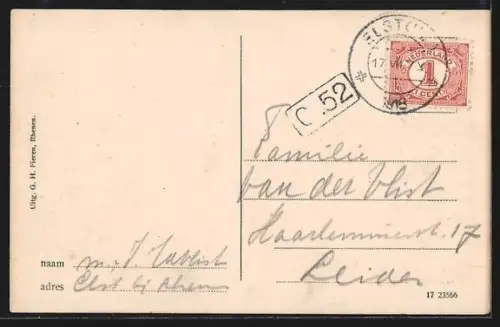 ELST (U
17
1918
NEDERLAND
1
CENT
C.52
Familie
van der Vlist
Haarlemmerstr. 17
Leiden
Uitg. G. H. Fieren, Rhenen.
naam
adres Elst bij Rhenen
17 23566